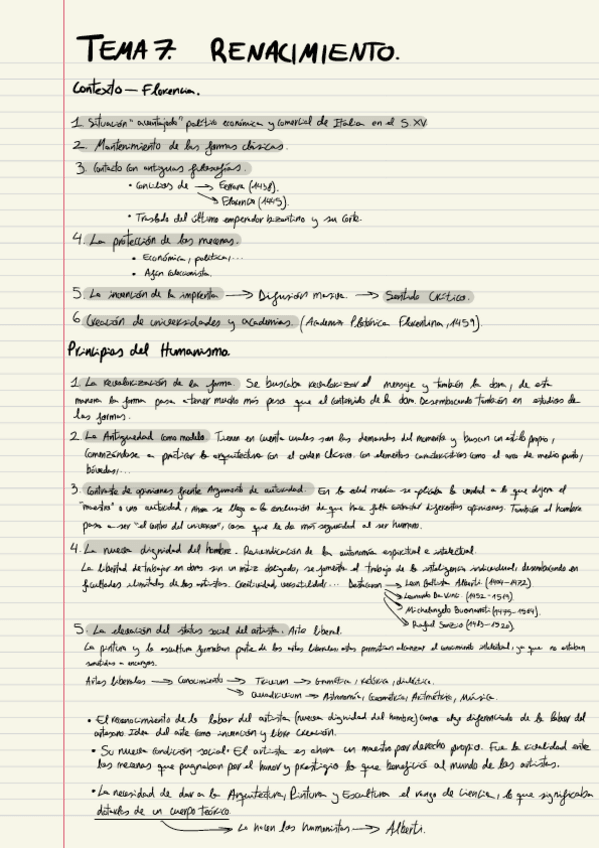 TEMA 7. RENACIMIENTO.
Contexto — Florencia.
1. Situación "aventajada" político económica y comercial de Italia en el S. XV.
2. Mantenimiento de las formas clásicas.
3. Contacto con antiguas filosofías.
• Concilios de → Ferrara (1438).
→ Florencia (1445).
• Traslado del último emperador bizantino y su corte.
4. La protección de los mecenas.
• Económica, política,...
• Afán coleccionista.
5. La invención de la imprenta → Difusión masiva. → Sentido Crítico.
6. Creación de universidades y academias. (Academia Platónica Florentina, 1459).
Principios del Humanismo.
1. La revalorización de la forma. Se buscaba revalorizar el mensaje y también la obra, de esta
manera la forma pasa a tener mucho más peso que el contenido de la obra. Desembocando también en estudios de
las formas.
2. La Antigüedad como modelo. Tienen en cuenta cuales son las demandas del momento y buscan un estilo propio,
comenzándose a practicar la arquitectura con el orden clásico. Con elementos característicos como el arco de medio punto,
bóvedas,...
3. Contraste de opiniones frente Argumento de autoridad. En la edad media se aplicaba la verdad a lo que dijera el
"maestro" o una autoridad, ahora se llega a la conclusión de que hace falta contrastar diferentes opiniones. También el hombre
pasa a ser "el centro del universo", cosa que le da más seguridad al ser humano.
4. La nueva dignidad del hombre. Reivindicación de la autonomía espiritual e intelectual.
La libertad de trabajar en obras sin un matiz obligado, se fomenta el trabajo de la inteligencia individual; desembocando en
facultades ilimitadas de los artistas. Creatividad, versatilidad... Destacaron → Leon Battista Alberti. (1404-1472)
→ Leonardo Da Vinci. (1452-1519).
→ Michelangelo Buonarroti (1475-1564).
→ Rafael Sanzio (1483-1520).
5. La elevación del status social del artista. Arte liberal.
La pintura y la escultura formaban parte de las artes liberales; estas permitían alcanzar el conocimiento intelectual, ya que no estaban
sometidas a encargos.
Artes liberales → Conocimiento → Trivium → Gramática, retórica, dialéctica.
→ Quadrivium → Astronomía, Geometría, Aritmética, Música.
• El reconocimiento de la labor del artista (nueva dignidad del hombre) como algo diferenciado de la labor del
artesano. Idea del arte como invención y libre creación.
• Su nueva condición social. El artista es ahora un maestro por derecho propio. Fue la rivalidad entre
los mecenas que pugnaban por el honor y prestigio lo que benefició al mundo de los artistas.
• La necesidad de dar a la Arquitectura, Pintura y Escultura el rango de ciencia, lo que significaba
dotarlas de un cuerpo teórico.
→ Lo hacen los humanistas → Alberti.